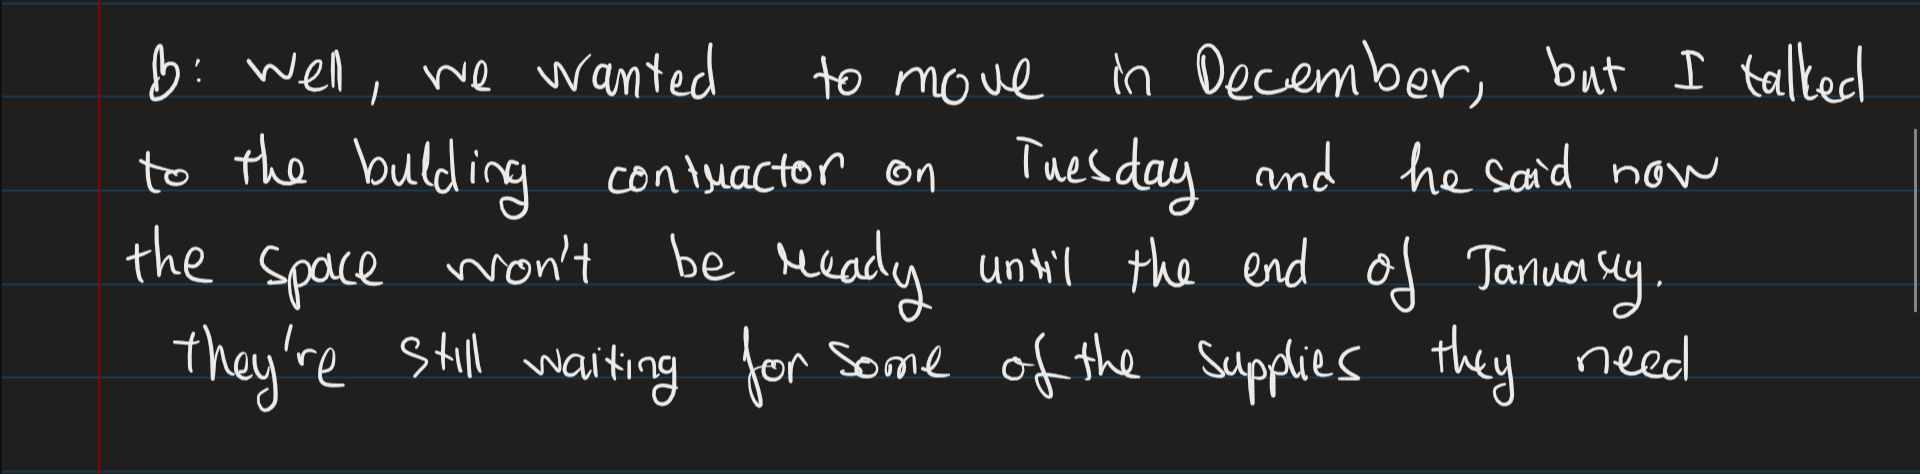 B: Well, we wanted to move in December, but I talked
to the bulding contractor on Tuesday and he said now
the space won't be ready until the end of January.
They're still waiting for some of the supplies they need